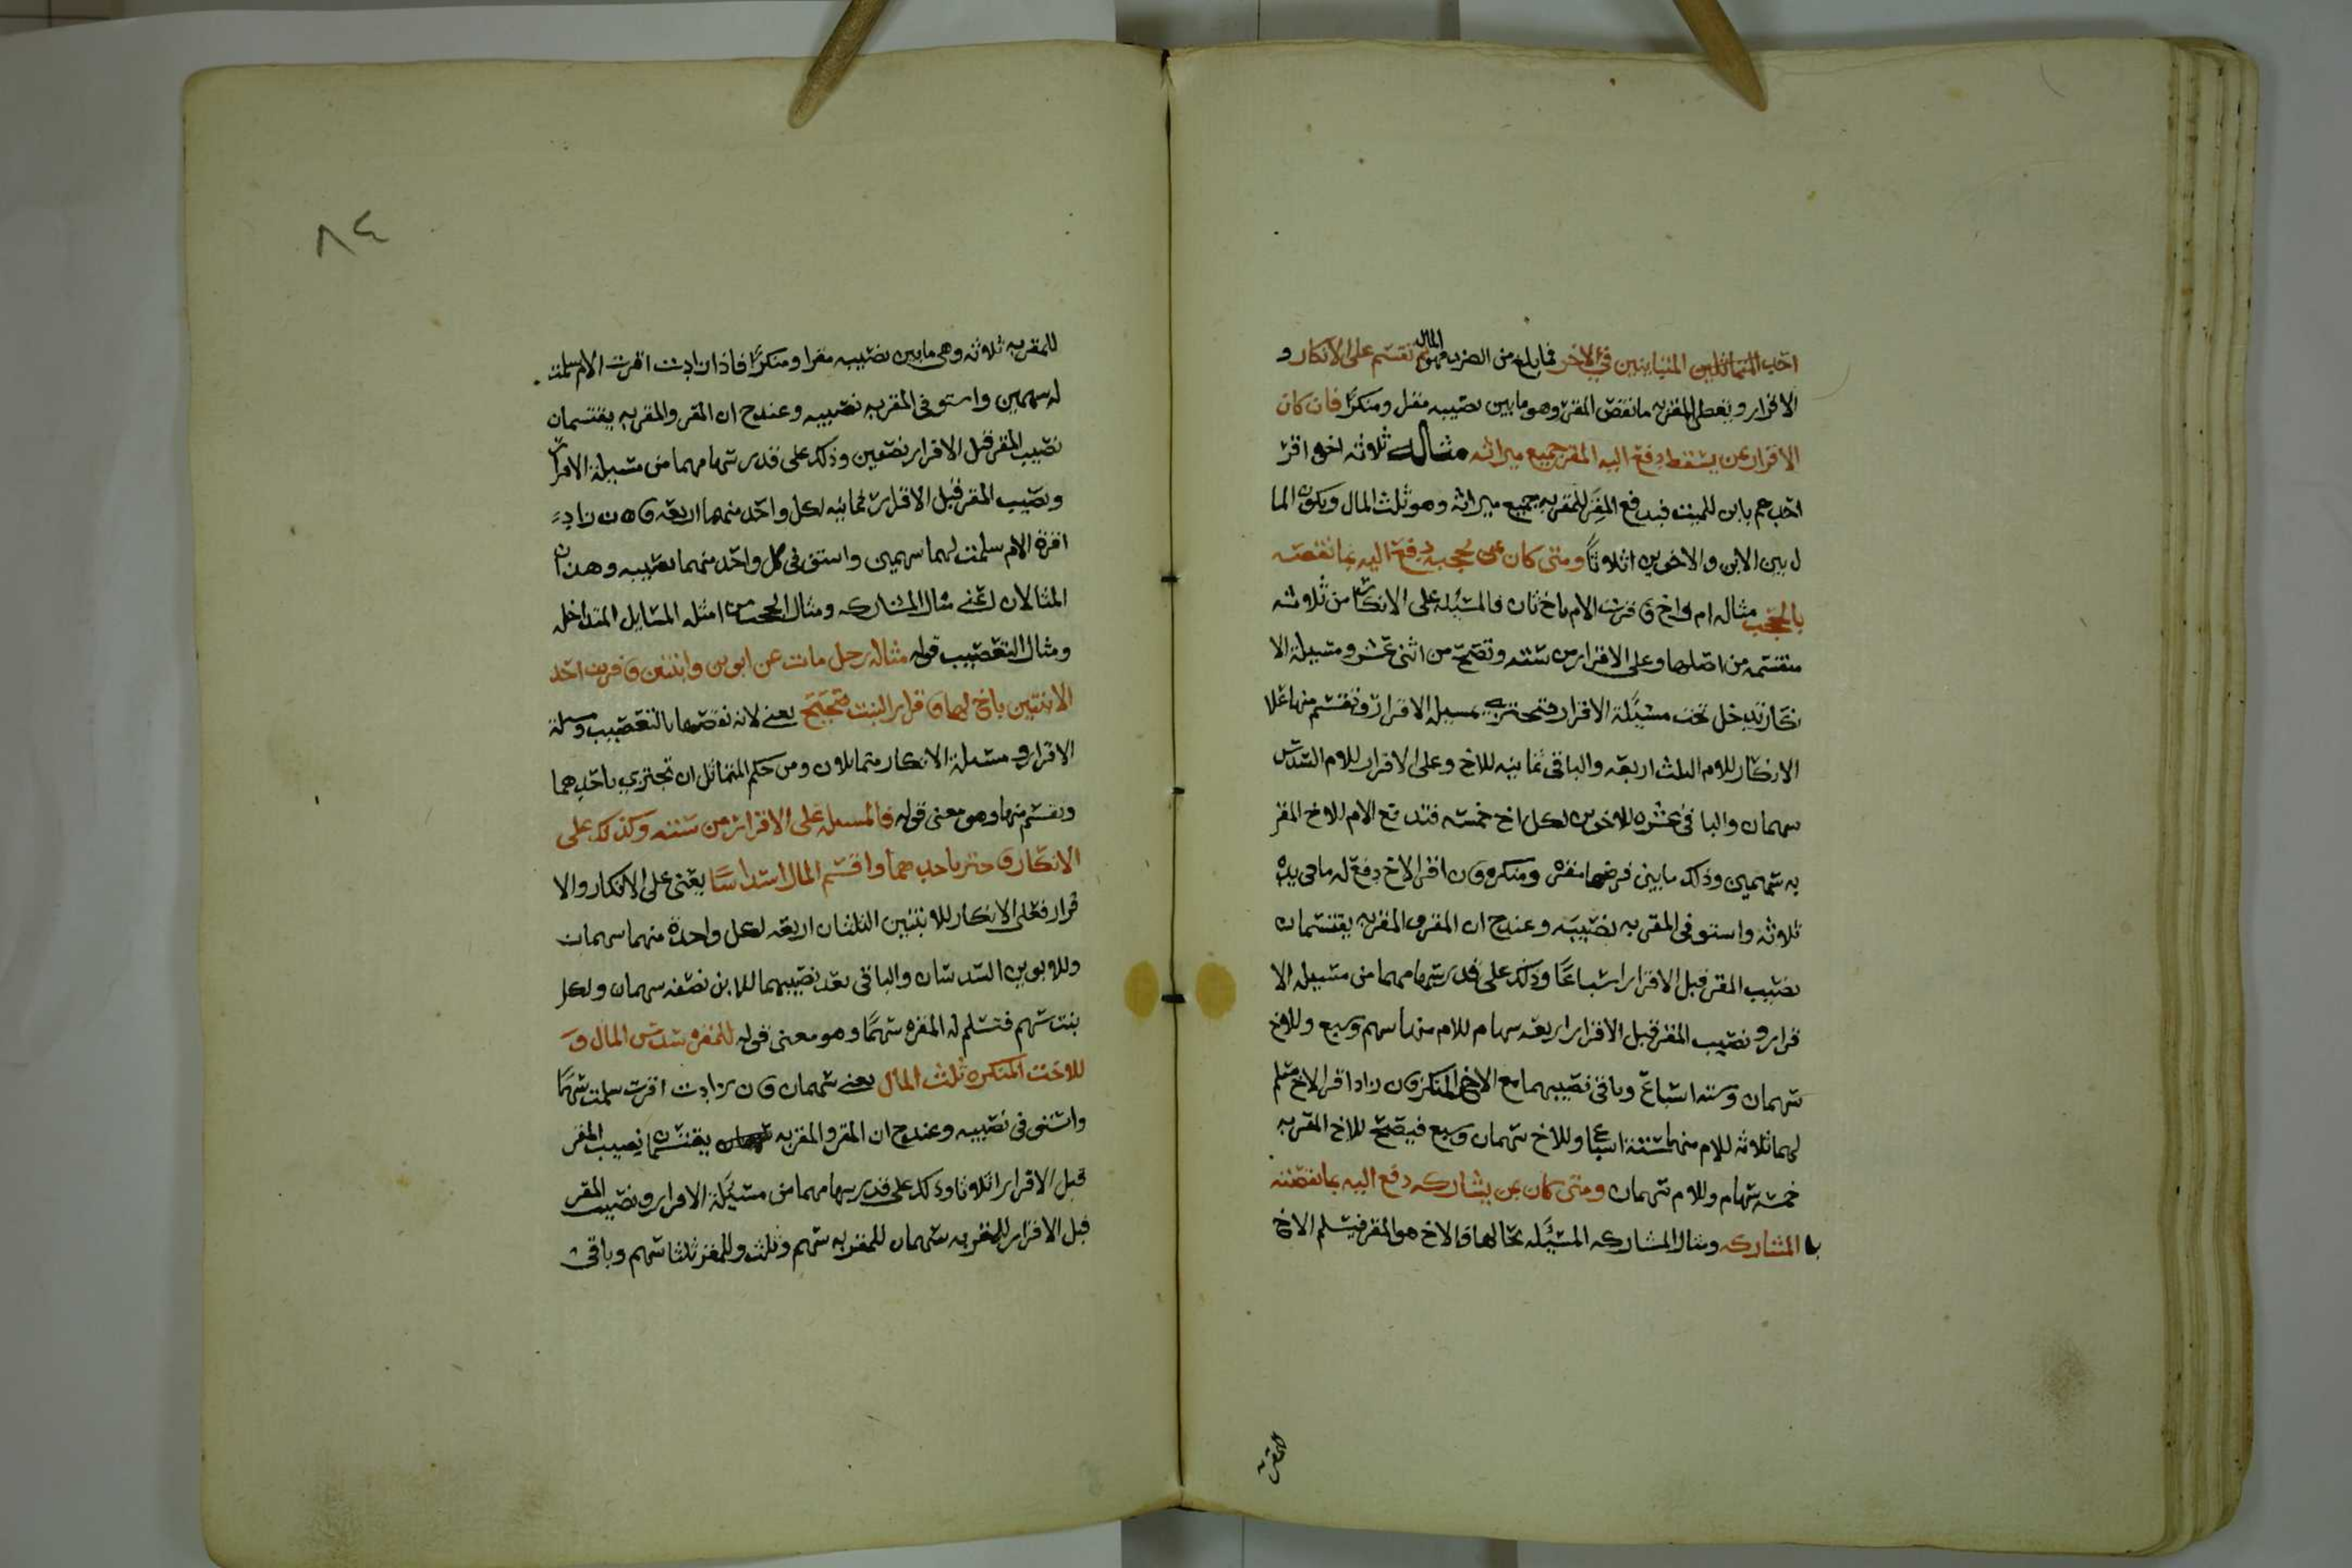 احد المتماثلين المتباينين في الاخر فما بلغ من الضرب فهو المال ثم تقسم على الانكار و
الاقرار ويعطى المقر به ما نقص المقر وهو ما بين نصيبه مقرا ومنكرًا فان كان
الاقرار بمن يسقط دفع اليه المقر جميع ميراثه مثاله ثلاثه اخوه اقر
احدهم بابن للميت فيدفع المقر للمقر به جميع ميراثه وهو ثلث المال ويكون الما
ل بين الابن والاخوين اثلاثًا ومتى كان بمن يحجبه دفع اليه بما نقصه
بالحجب مثاله ام واخ قرت الام باخ ثان فالمسئله على الانكار من ثلاثه
منقسمه من اصلها وعلى الاقرار من سته وتصح من اثنى عشر ومسيلة الا
نكار تدخل تحت مسئلة الاقرار فتجتزي بمسيله الاقرار وتقسم منها على
الانكار للام الثلث اربعه والباقي ثمانيه للاخ وعلى الاقرار للام السدس
سهمان والباقي عشره للاخوين لكل اخ خمسه فتدفع الام للاخ المقر
به سهمين وذلك ما بين فرضها مقره ومنكره وان اقر الاخ دفع له ما في يده
ثلاثه واستوفى المقر به نصيبه وعند ح ان المقر والمقر به يقتسمان
نصيب المقر قبل الاقرار اسباعًا وذلك على قدر سهامهما من مسيله الا
قرار ونصيب المقر قبل الاقرار اربعه سهام للام منها سهم وسبع وللاخ
سهمان وسته اسباع وباقي نصيبهما مع الاخ المنكر وان زاد اقر الاخ سلم
لهما ثلاثه للام منها ستة اسباع وللاخ سهمان وسبع فيصح للاخ المقر به
خمسه سهام وللام سهمان ومتى كان بمن يشاركه دفع اليه بما نقصته
با المشاركه ومثال المشاركه المسئله بحالها والاخ هو المقر فيسلم الاخ
المقر
٨٤
للمقر به ثلاثه وهي ما بين نصيبه مقرا ومنكرًا فاذا زادت اقرت الام سلمت
له سهمين واستوفى المقر به نصيبه وعند ح ان المقر والمقر به يقتسمان
نصيب المقر قبل الاقرار نصفين وذلك على قدر سهامهما من مسيلة الاقرار
ونصيب المقر قبل الاقرار ثمانيه لكل واحد منهما اربعه وان زاد
اقرة الام سلمت لهما سهمين واستوفى كل واحد منهما نصيبه وهذان
المثالان لعني مثال المشاركه ومثال الحجب من امثله المسايل المتداخله
ومثال التعصيب قوله مثاله رجل مات عن ابوين وابنتين وقرت احد
الابنتين باخ لها وقرار البنت صحيح يعني لانه نقصها بالتعصيب ومسئلة
الاقرار ومسئلة الانكار متماثلان ومن حكم المتماثل ان تجتزي باحدهما
وتقسم منها وهو معنى قوله فالمسئله على الاقرار من سته وكذلك على
الانكار فاجتز باحدهما واقسم المال اسداسًا يعني على الانكار والا
قرار فعلى الانكار للابنتين الثلثان اربعه لكل واحدة منهما سهمان
وللابوين السدسان والباقي بعد نصيبهما للابن نصفه سهمان ولكل
بنت سهم فتسلم له المقره سهمًا وهو معنى قوله للمقره سدس المال و
للاخت المنكره ثلث المال يعني سهمان وان زادت اقرت سلمت سهمًا
واستوفى نصيبه وعند ح ان المقر والمقر به يقتسمان نصيب المقر
قبل الاقرار اثلاثا وذلك على قدر سهامهما من مسئلة الاقرار ونصيب المقر
قبل الاقرار للمقر به سهمان للمقر به سهم وثلث وللمقر ثلثا سهم وباقي